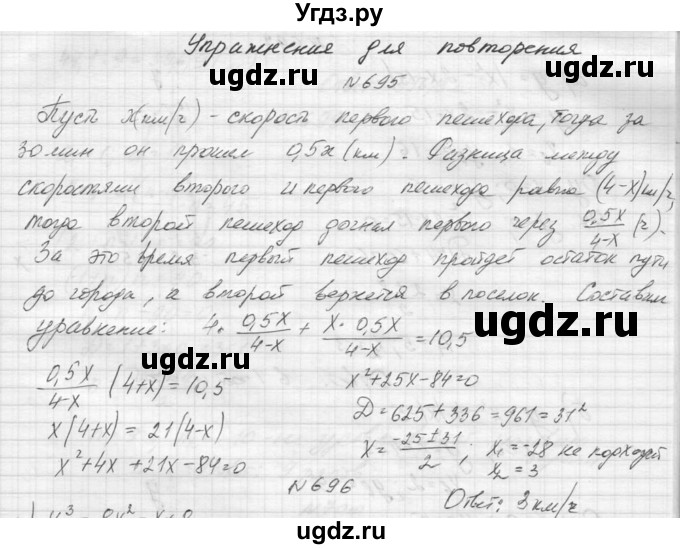 Угдз.ру
Упражнения для повторения
ugdz.ru ugdz.ru
№695
Пусть x(км/ч) - скорость первого пешехода, тогда за
30 мин он прошел 0,5x (км). Разница между
ugdz.ru ugdz.ru
скоростями второго и первого пешехода равна (4-x)км/ч,
тогда второй пешеход догнал первого через 0,5x/4-x (ч).
За это время первый пешеход пройдет остаток пути
ugdz.ru ugdz.ru
до города, а второй вернется в поселок. Составим
уравнение: 4· 0,5x/4-x + x·0,5x/4-x = 10,5
ugdz.ru ugdz.ru
0,5x/4-x (4+x)=10,5
x(4+x) = 21(4-x)
x²+4x+21x-84=0
x²+25x-84=0
D=625+336=961=31²
x= -25±31/2 ; x₁=-28 не подходит
x₂=3
ugdz.ru ugdz.ru
№696
Ответ: 3км/ч
ugdz.ru ugdz.ru